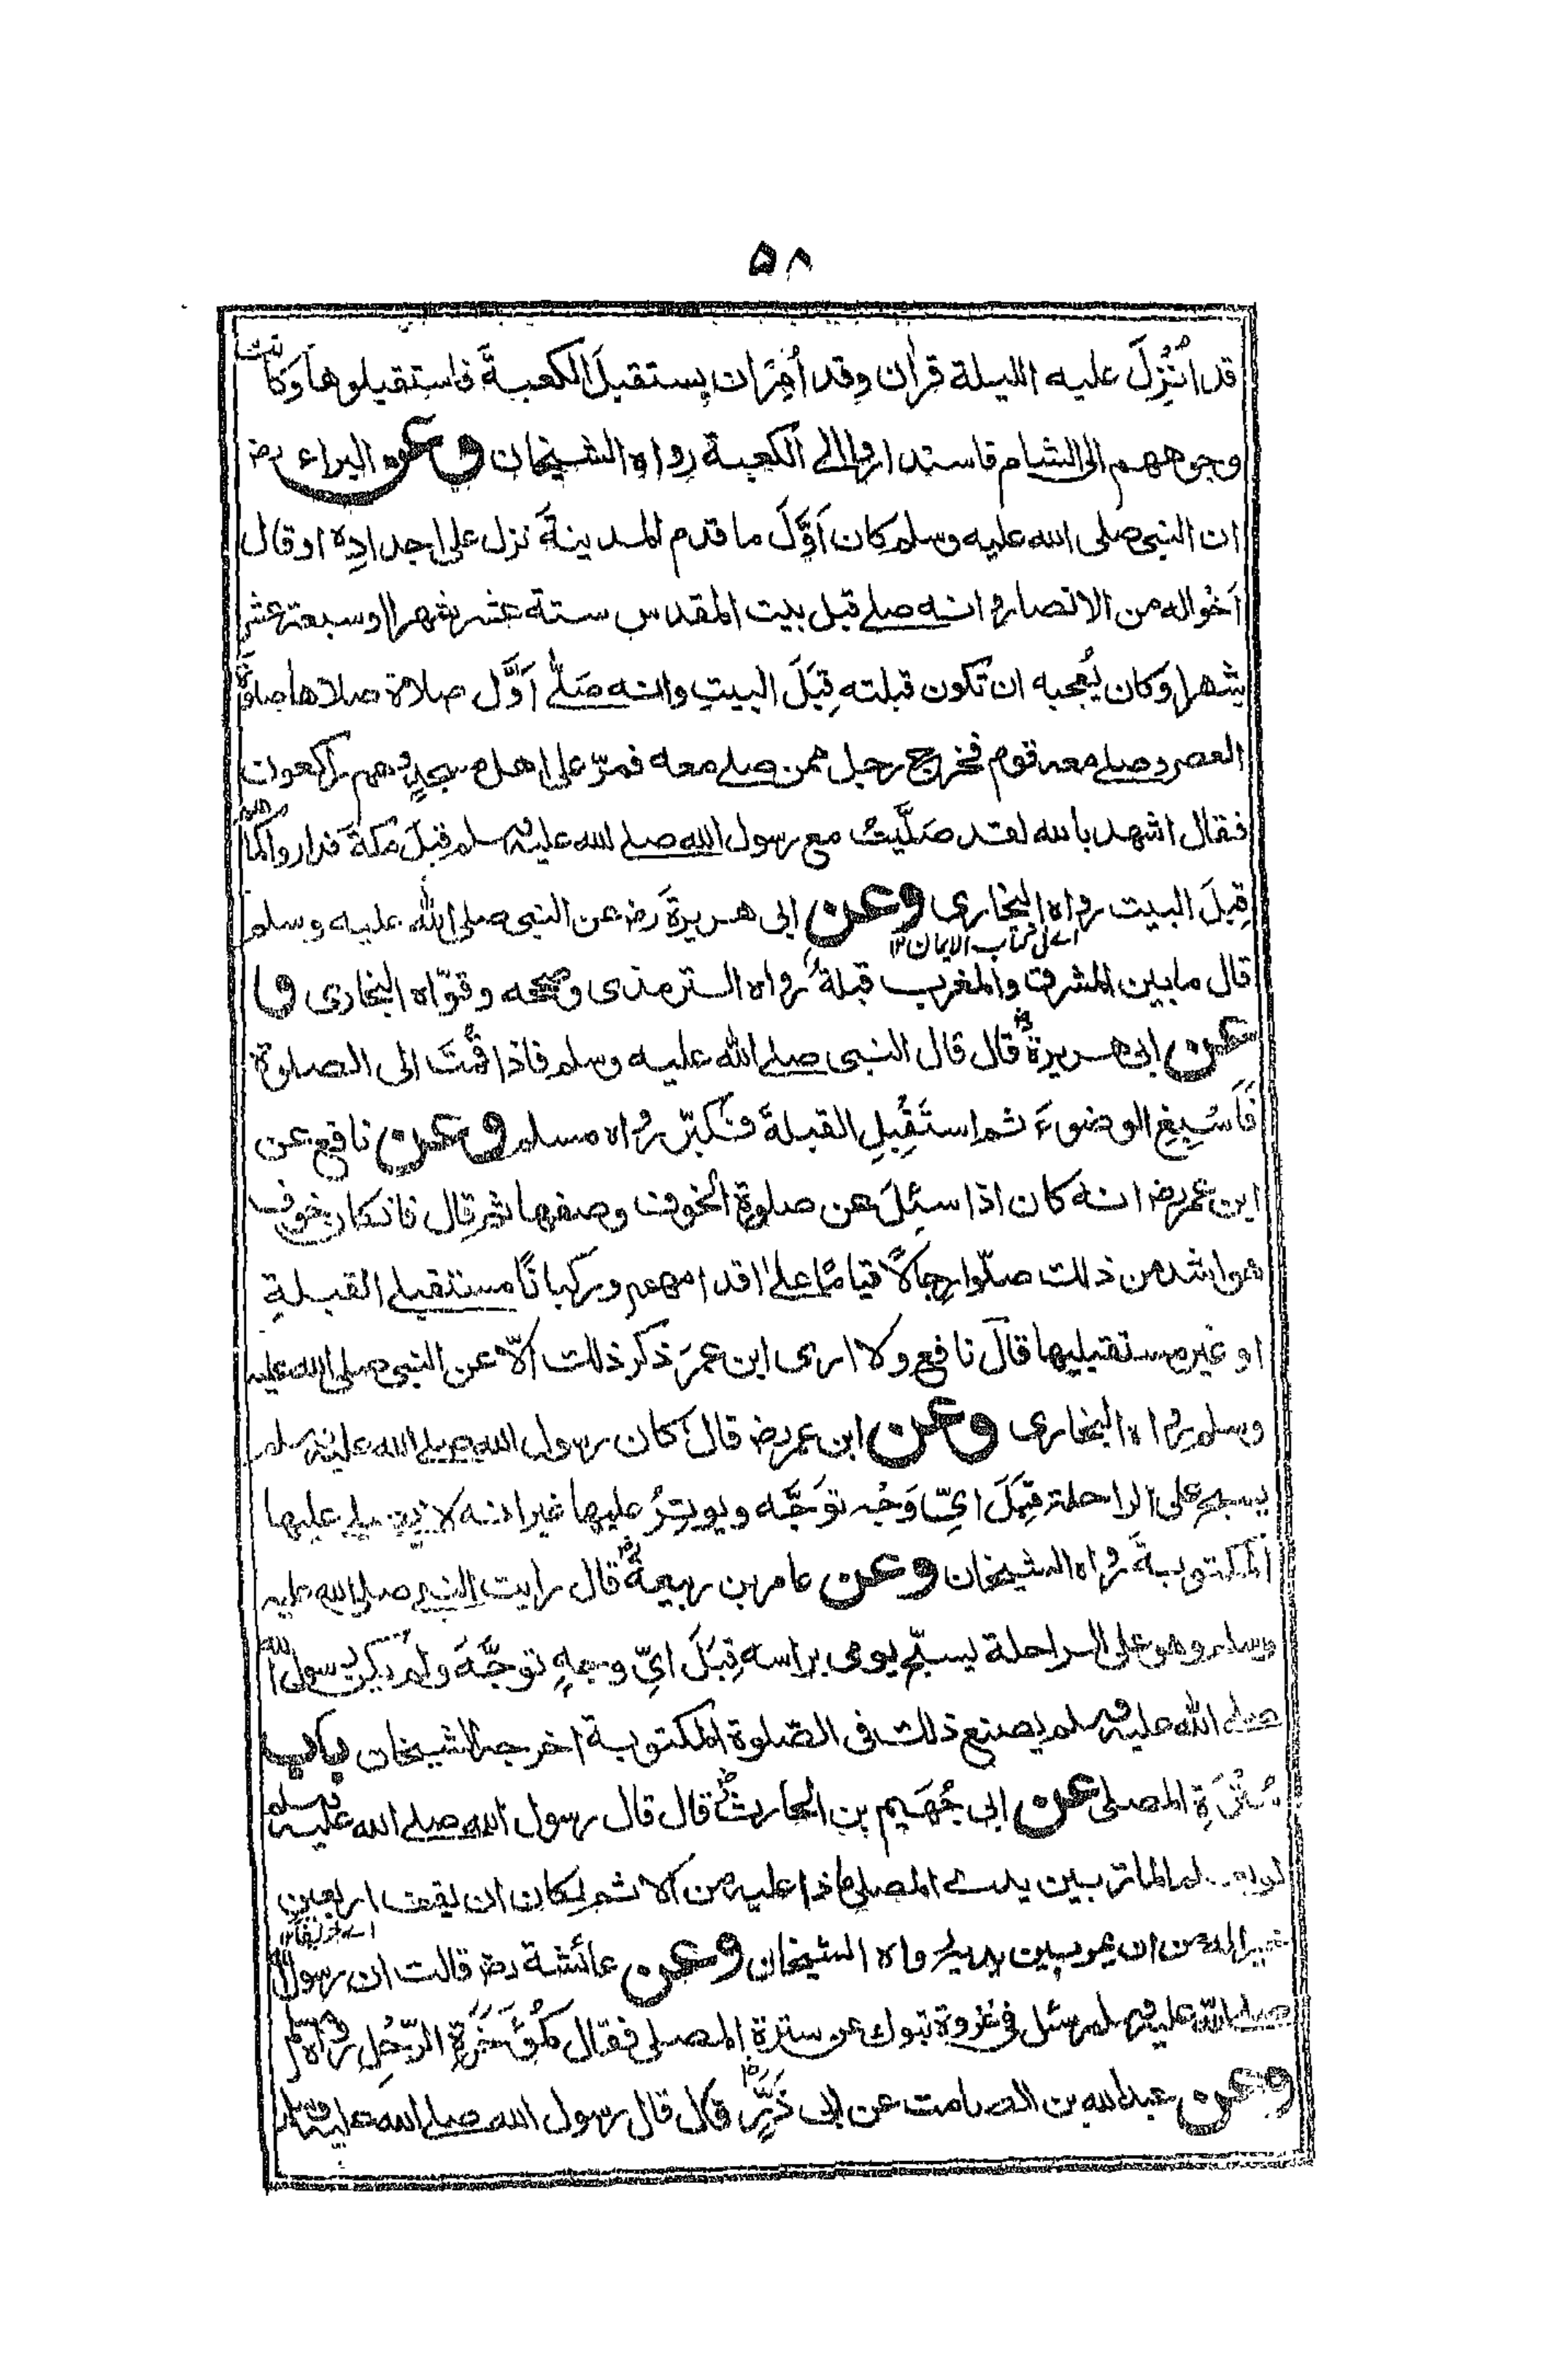 ۵۸
قد اُنْزِلَ عليه الليلة قراٰن وقد اُمِرَ ان يستقبلَ الكعبةَ فاستقبلوها وكانت
وجوههم الى الشام فاستداروا الى الكعبة رواه الشيخان وعن البراء رض
ان النبى صلى الله عليه وسلم كان اَوَّلَ ما قدم المدينةَ نزل على اجدادِه او قال
اَخْواله من الانصار و انه صلے قبل بيت المقدس ستة عشر شهرا او سبعة عشر
شهرا وكان يُعجبه ان تكون قبلته قِبَلَ البيتِ وانه صَلّٰے اَوَّل صلاة صلاها صلوة
العصر وصلے معه قوم فخرج رجل ممن صلے معه فمرّ على اهل مسجدٍ وهم راكعون
فقال اشهد بالله لقد صَلَّيتُ مع رسول الله صلے الله عليه وسلم قِبَلَ مكةَ فداروا كما هم
قِبَلَ البيت رواه البخارى وعن ابى هريرةَ رض عن النبى صلى الله عليه وسلم
اے فى كتاب الايمان ۱۲
قال مابين المشرق والمغرب قبلةٌ رواه الترمذى وصححه وقوّاه البخارى و
عن ابى هريرةَ رض قال قال النبى صلے الله عليه وسلم فاذا قُمتَ الى الصلوة
فَاَسْبِغِ الوضوءَ ثم استَقْبِلِ القبلةَ فكبّر رواه مسلم وعن نافع عن
ابن عمر رض انه كان اذا سئِلَ عن صلوة الخوف وصفها ثم قال فان كان خوف
هو اشد من ذلك صلّوا رجالًا قيامًا علٰے اقدامهم وركبانًا مستقبلے القبلةِ
او غير مستقبليها قال نافع ولا ارى ابن عمرَ ذكر ذلك الّا عن النبى صلى الله عليه
وسلم رواه البخارى وعن ابن عمر رض قال كان رسول الله صلے الله عليه وسلم
يسبح على الراحلة قِبَلَ ايِّ وَجْه توَجَّه ويوتِرُ عليها غير انه لا يصلے عليها
المكتوبةَ رواه الشيخان وعن عامر بن ربيعةَ رض قال رايت النبى صلى الله عليه
وسلم وهو على الراحلة يسبّح يومى براسه قِبَلَ ايِّ وجهٍ توجَّهَ ولم يكن رسول الله
صلے الله عليه وسلم يصنع ذلك فى الصّلوة المكتوبة اخرجه الشيخان باب
سُتْرَةِ المصلى عن ابى جُهَيم بن الحارث رض قال قال رسول الله صلے الله عليه وسلم
لو يعلم المار بين يدے المصلى ماذا عليه من الاثم لكان ان يقف اربعين
خيرا له من ان يمر بين يديه رواه الشيخان وعن عائشة رض قالت ان رسول الله
صلے الله عليه وسلم سئل فى غزوة تبوك عن سترة المصلى فقال كمُؤَخَّرَةِ الرَّحْلِ رواه مسلم
وعن عبد الله بن الصامت عن ابى ذَرٍّ رض قال قال رسول الله صلے الله عليه وسلم